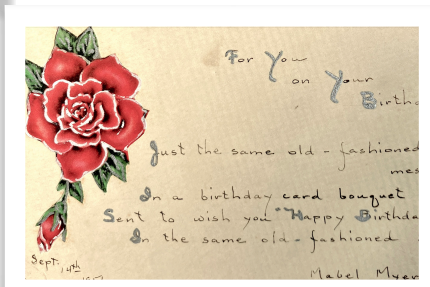 For You
on Your
Birthd
Just the same old-fashioned
mes
In a birthday card bouquet
Sent to wish you "Happy Birthda
In the same old-fashioned
Sept. 14th
Mabel Myer